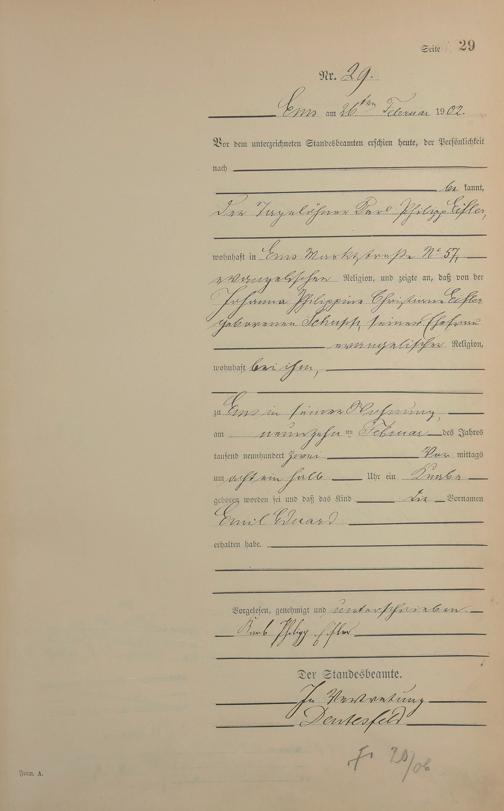 Seite 29
Nr. 29.
Ems am 26ten Februar 1902.
Vor dem unterzeichneten Standesbeamten erschien heute, der Persönlichkeit
nach
be kannt,
der Tagelöhner Karl Philipp Eifler,
wohnhaft in Ems Marktstraße No 57,
evangelischer Religion, und zeigte an, daß von der
Johanna Philippine Christiane Eifler
geborenen seiner Ehefrau
evangelischer Religion,
wohnhaft bei ihm,
zu Ems in seiner Wohnung,
am neunzehn ten Februar des Jahres
tausend neunhundert zwei Vor mittags
um acht ein halb Uhr ein Knabe
geboren worden sei und daß das Kind die Vornamen
Emil Eduard
erhalten habe.
Vorgelesen, genehmigt und unterschrieben
Karl Philipp Eifler
Der Standesbeamte.
In Vertretung
Form. A.